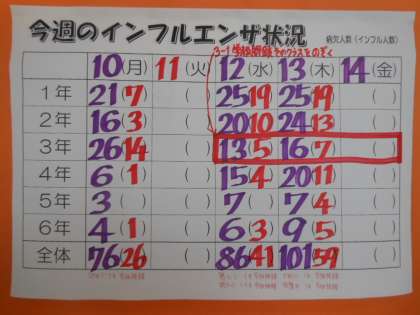 今週のインフルエンザ状況 病欠人数(インフル人数)
3-1 学校閉鎖 そのクラスをのぞく
10(月) 11(火) 12(水) 13(木) 14(金)
1年 21(7) ( ) 25(19) 25(19) ( )
2年 16(3) ( ) 20(10) 24(13) ( )
3年 26(14) ( ) 13(5) 16(7) ( )
4年 6(1) ( ) 15(4) 20(11) ( )
5年 3( ) ( ) 7( ) 7(4) ( )
6年 4(1) ( ) 6(3) 9(5) ( )
全体 76(26) ( ) 86(41) 101(59) ( )